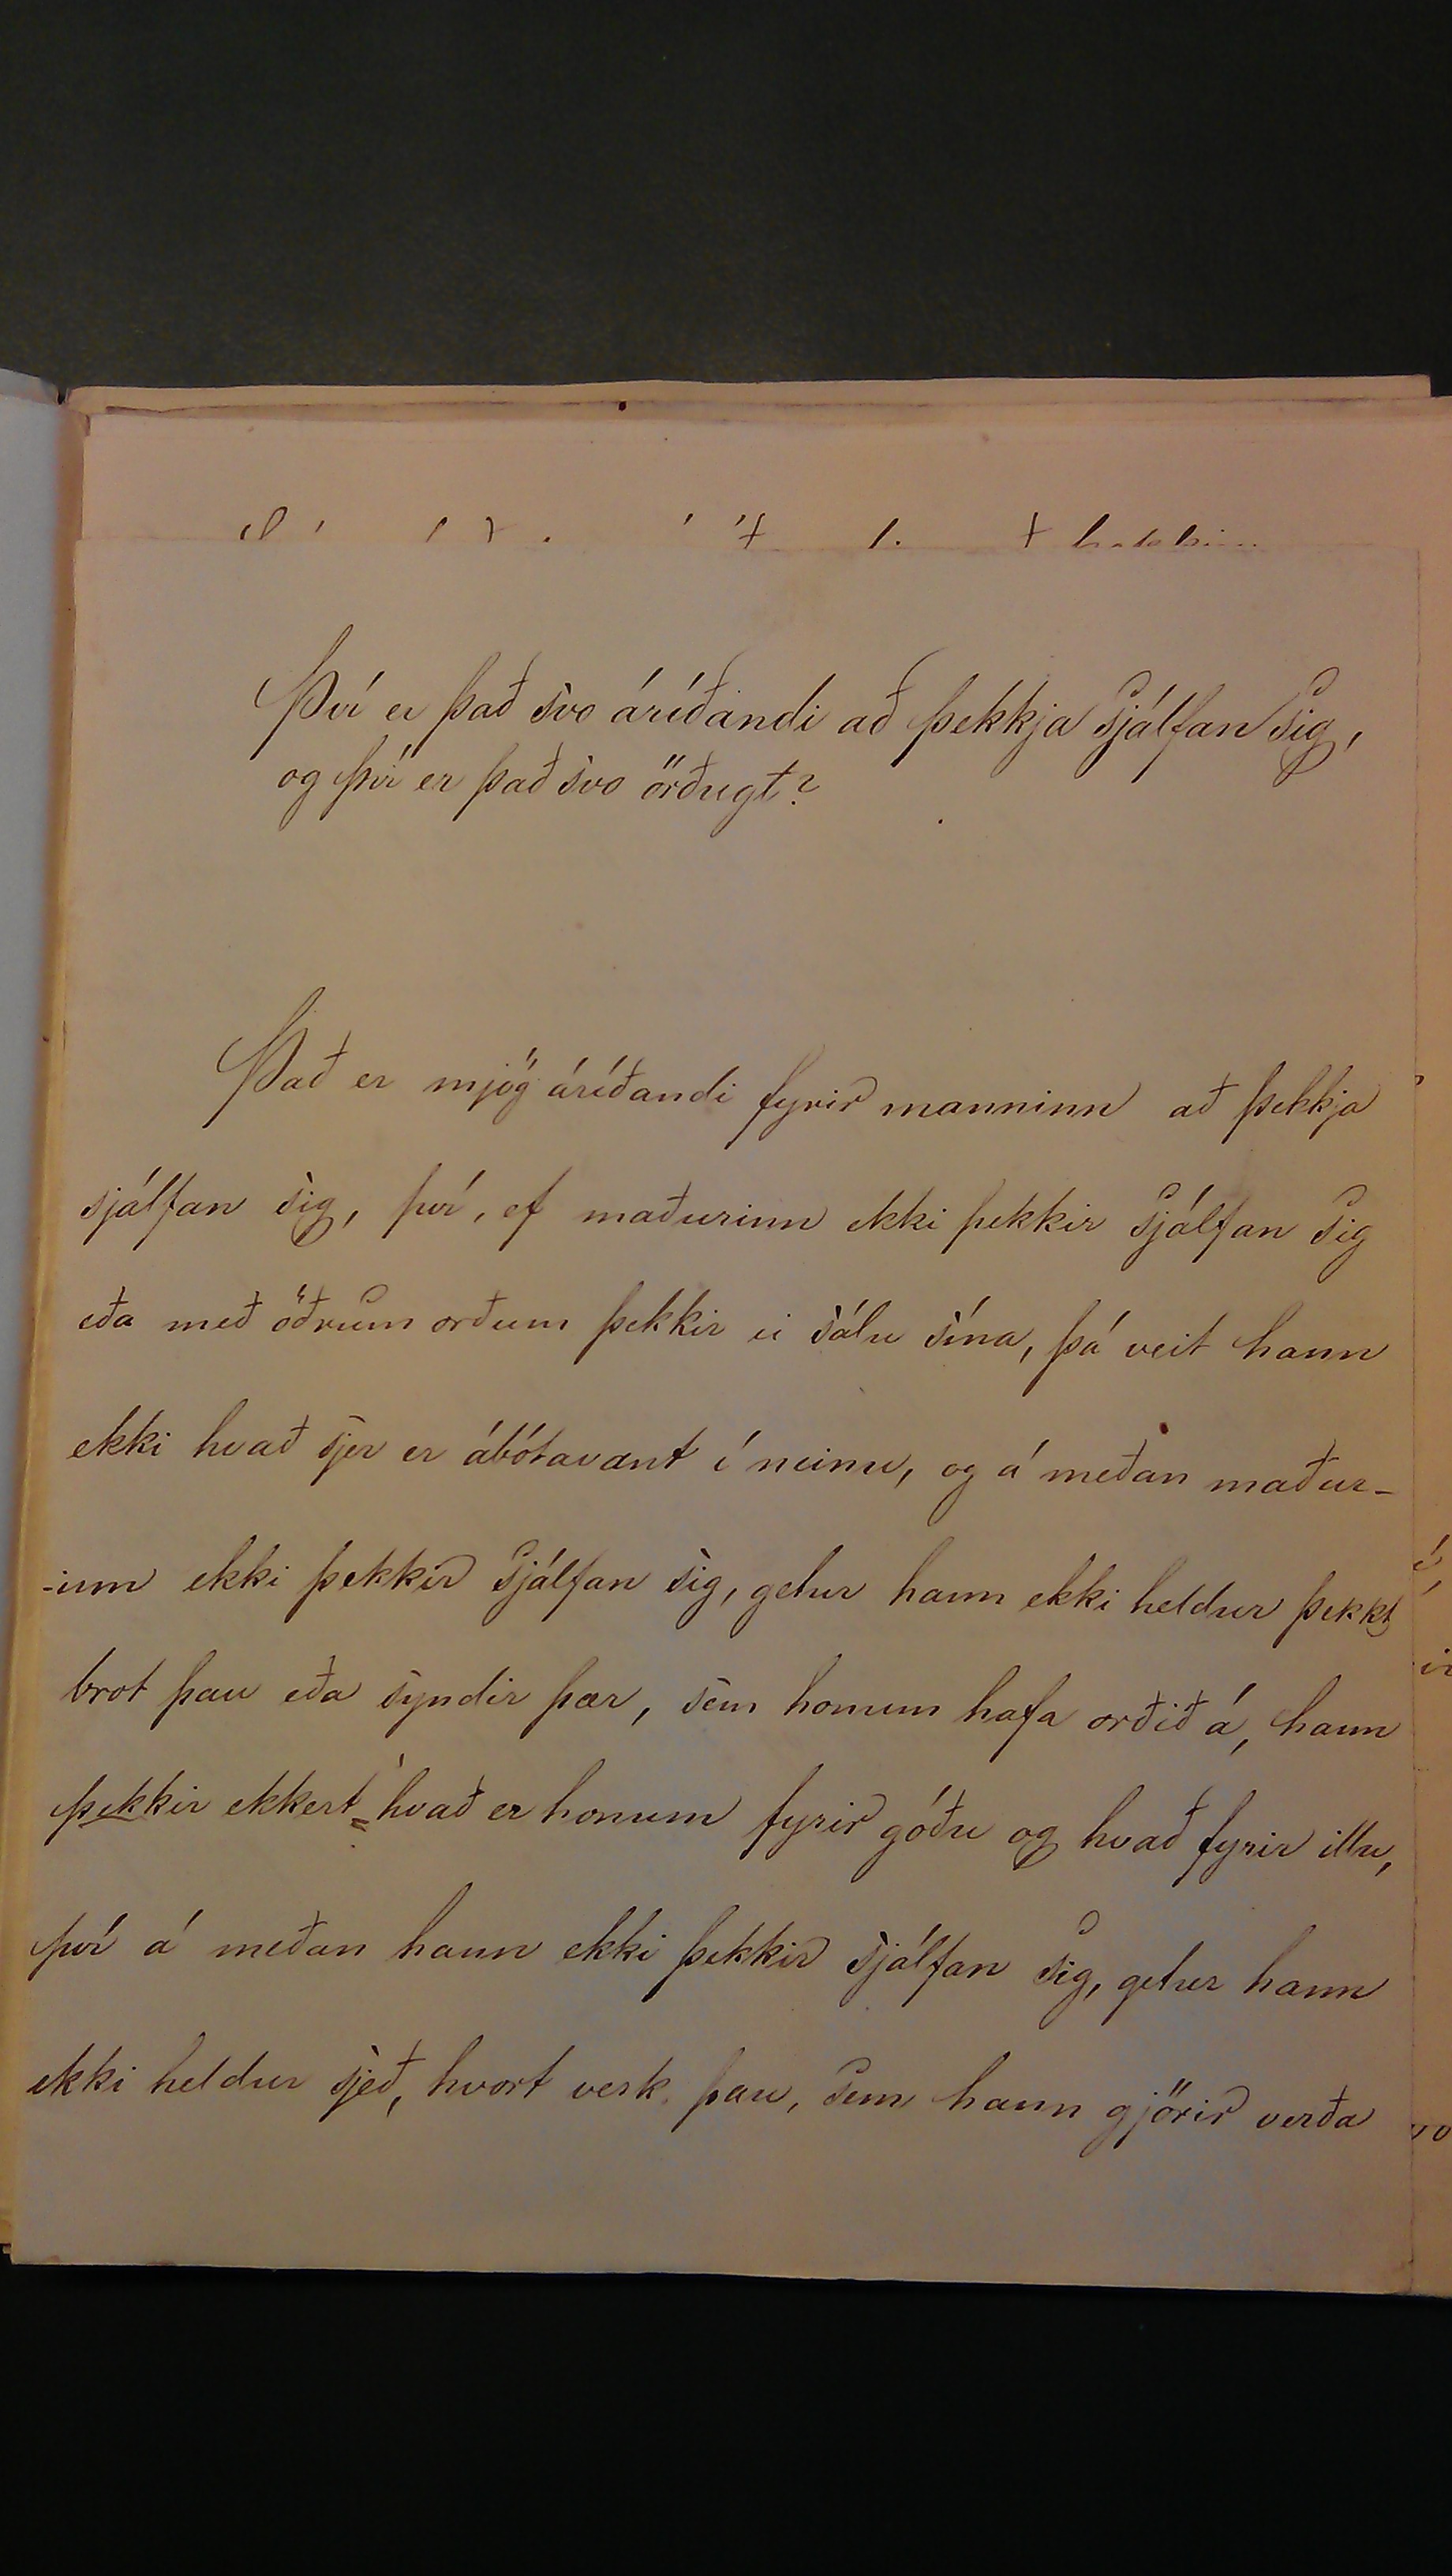 Því er það svo áríðandi að þekkja sjálfan sig,
og því er það svo örðugt?
Það er mjög áríðandi fyrir manninn að þekkja
sjálfan sig, því, ef maðurinn ekki þekkir sjálfan sig
eða með öðrum orðum þekkir ei sálu sína, þá veit hann
ekki hvað sjer er ábótavant í neinu, og á meðan maður-
-inn ekki þekkir sjálfan sig, getur hann ekki heldur þekkt
brot þau eða syndir þær, sem honum hafa orðið á, hann
þekkir ekkert hvað er honum fyrir góðu og hvað fyrir illu,
því á meðan hann ekki þekkir sjálfan sig, getur hann
ekki heldur sjeð, hvort verk þau, sem hann gjörir verða